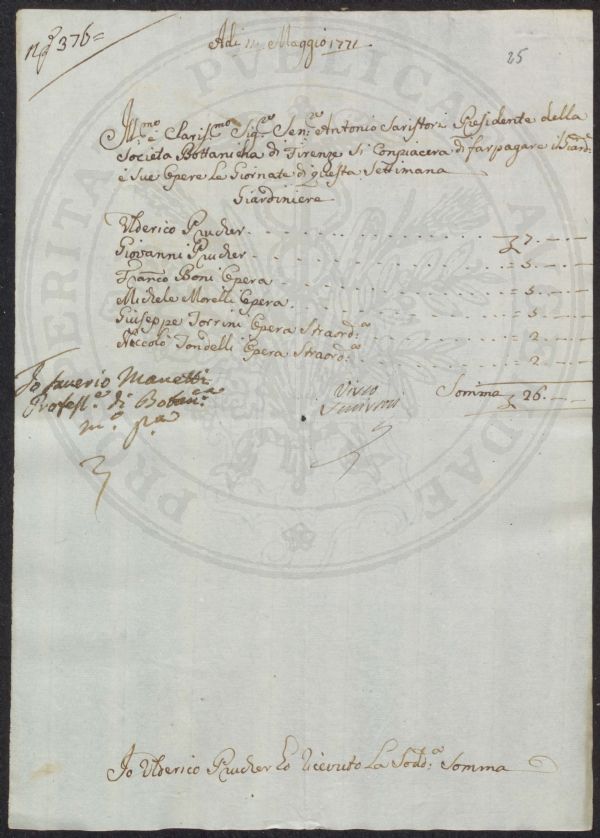 N.º 376=
Adi 11. Maggio 1771
25
Ill:mo e Claris:mo Sig:re Sen:re Antonio Saristori Presidente della
Societa Bottanicha di Firenze si Conpiacerà di far pagare il Giard:
e Sue Opere le Giornate di questa Settimana
Giardiniere
Ulderico Prucher 7.
Giovanni Prucher = 5.
Franco Boni Opera = 5.
Michele Morelli Opera = 5.
Giuseppe Torrini Opera Straord:a = 2.
Niccolò Tondelli Opera Straord:a 2.
Somma 26.
Io Saverio Manetti
Profess.e di Botan:ca
m:o p:a
Visto
Io Ulderico Prucher ho Ricevuto La Sod:a Somma
PRO PUBLICA